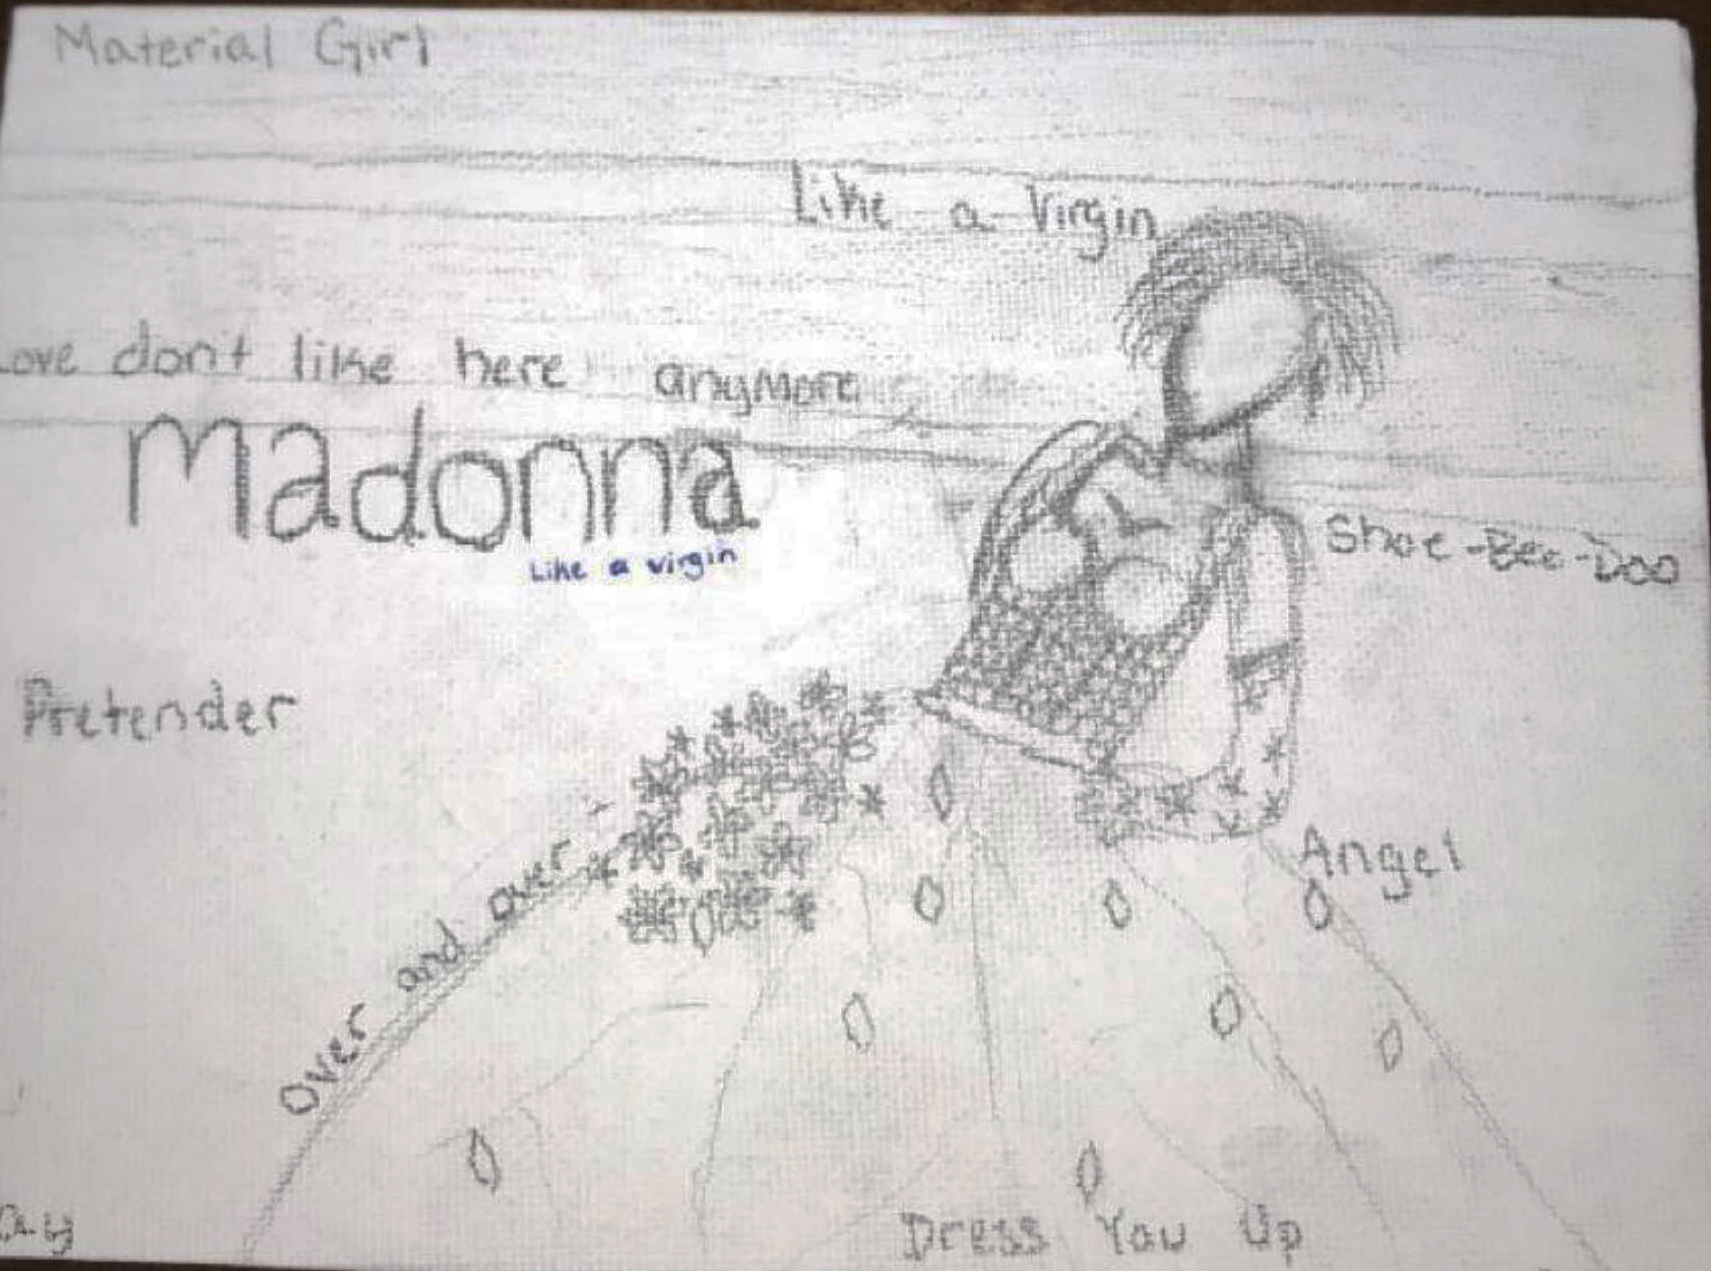 Material Girl
Like a Virgin
Love don't like here anymore
Madonna
Like a virgin
Shoe-Bee-Doo
Pretender
Angel
Over and over
ay
Dress You Up